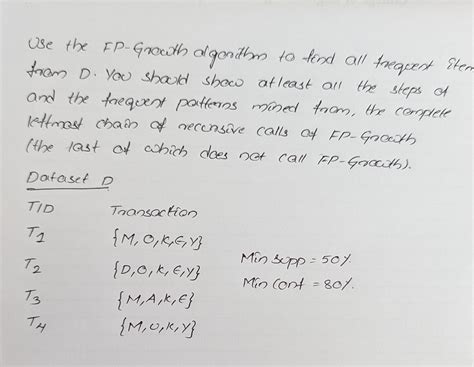 Use the FP-Growth algorithm to find all frequent item
from D. You should show atleast all the steps of
and the frequent patterns mined from, the complete
leftmost chain of recursive calls of FP-Growth
(the last of which does not call FP-Growth).
Dataset D
TID Transaction
T1 {M,O,K,E,Y}
T2 {D,O,K,E,Y} Min supp = 50%
T3 {M,A,K,E} Min conf = 80%
T4 {M,U,K,Y}